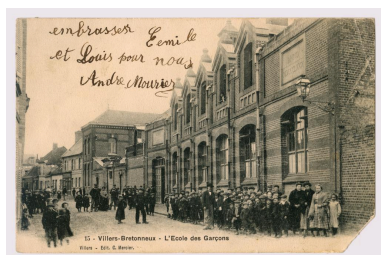 embrasser Emile
et Louis pour nous
Andre Mourier
15 - Villers-Bretonneux - L'Ecole des Garçons
Villers - Edit. C. Mercier.